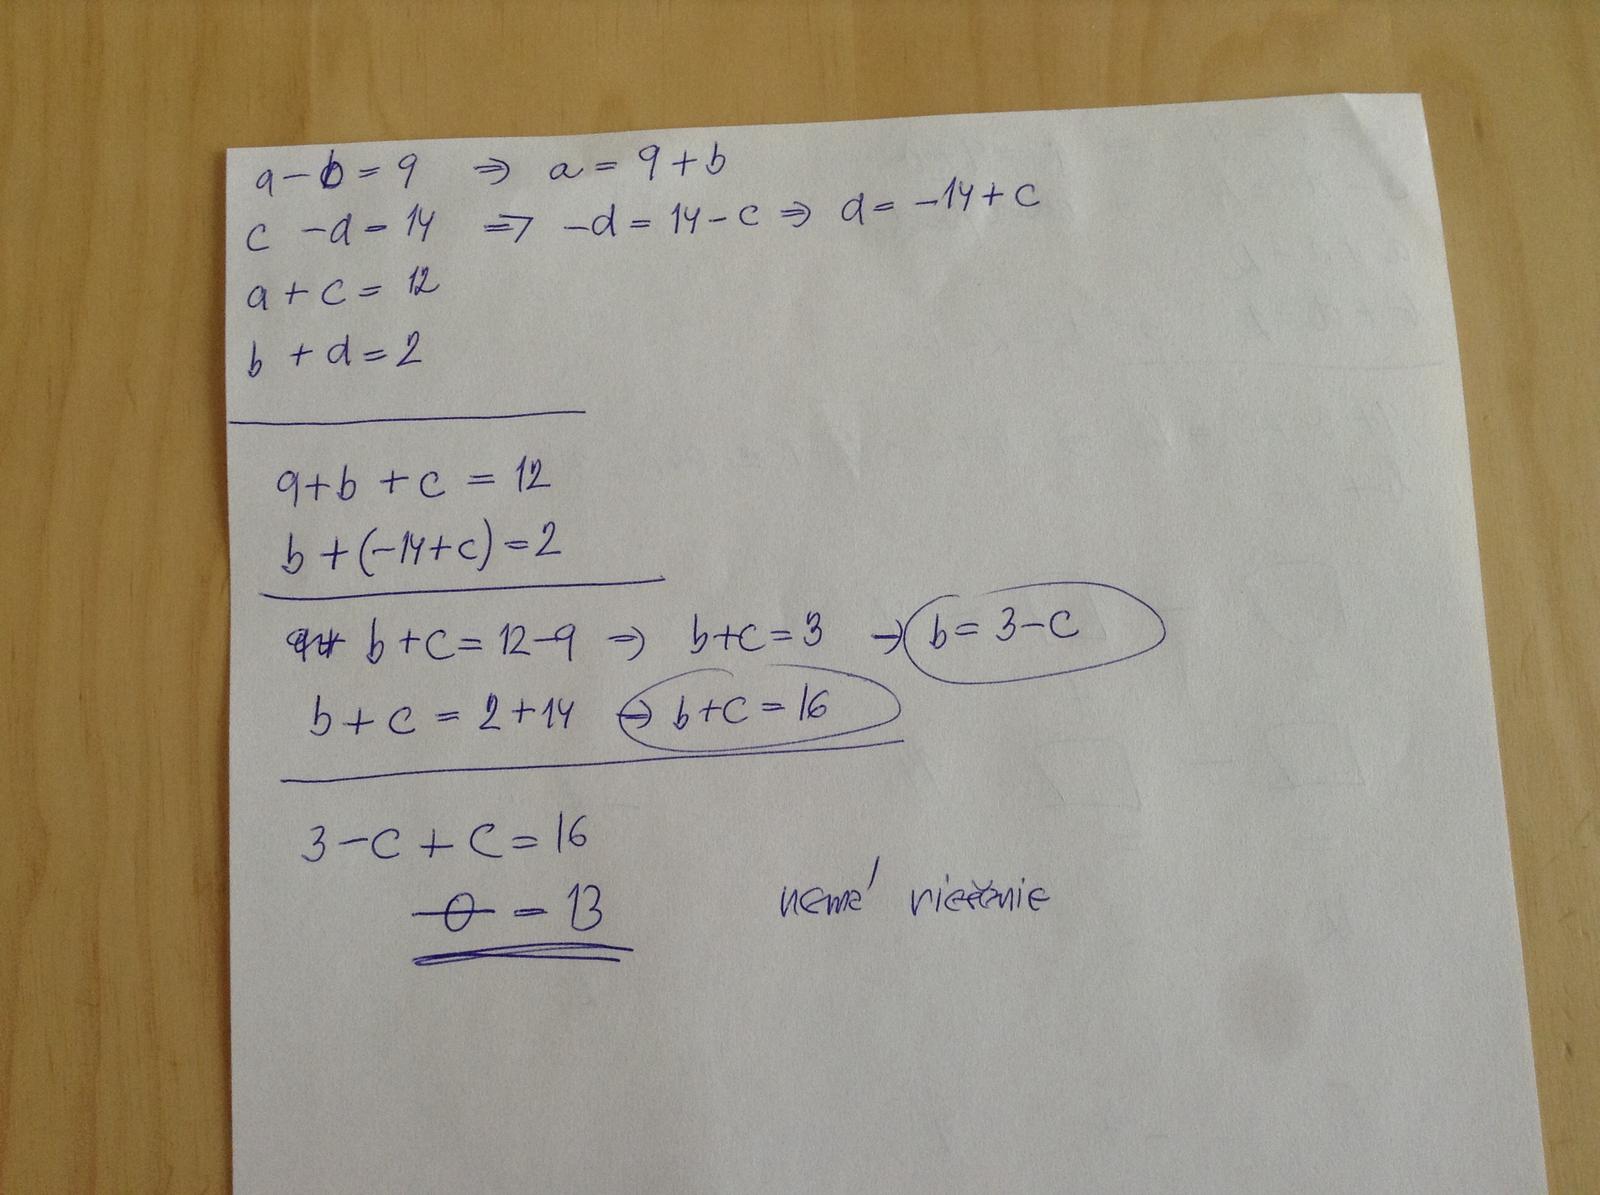 a-b=9 ⇒ a=9+b
c -d=14 ⇒ -d=14-c ⇒ d=-14+c
a+c=12
b+d=2
9+b+c=12
b+(-14+c)=2
b+c=12-9 ⇒ b+c=3 → b=3-c
b+c=2+14 ⇒ b+c=16
3-c+c=16
0=13 nemá riešenie